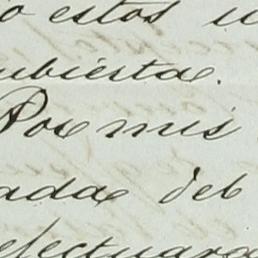 o estos u
ubierta.
Por mis
ada del
efectuara